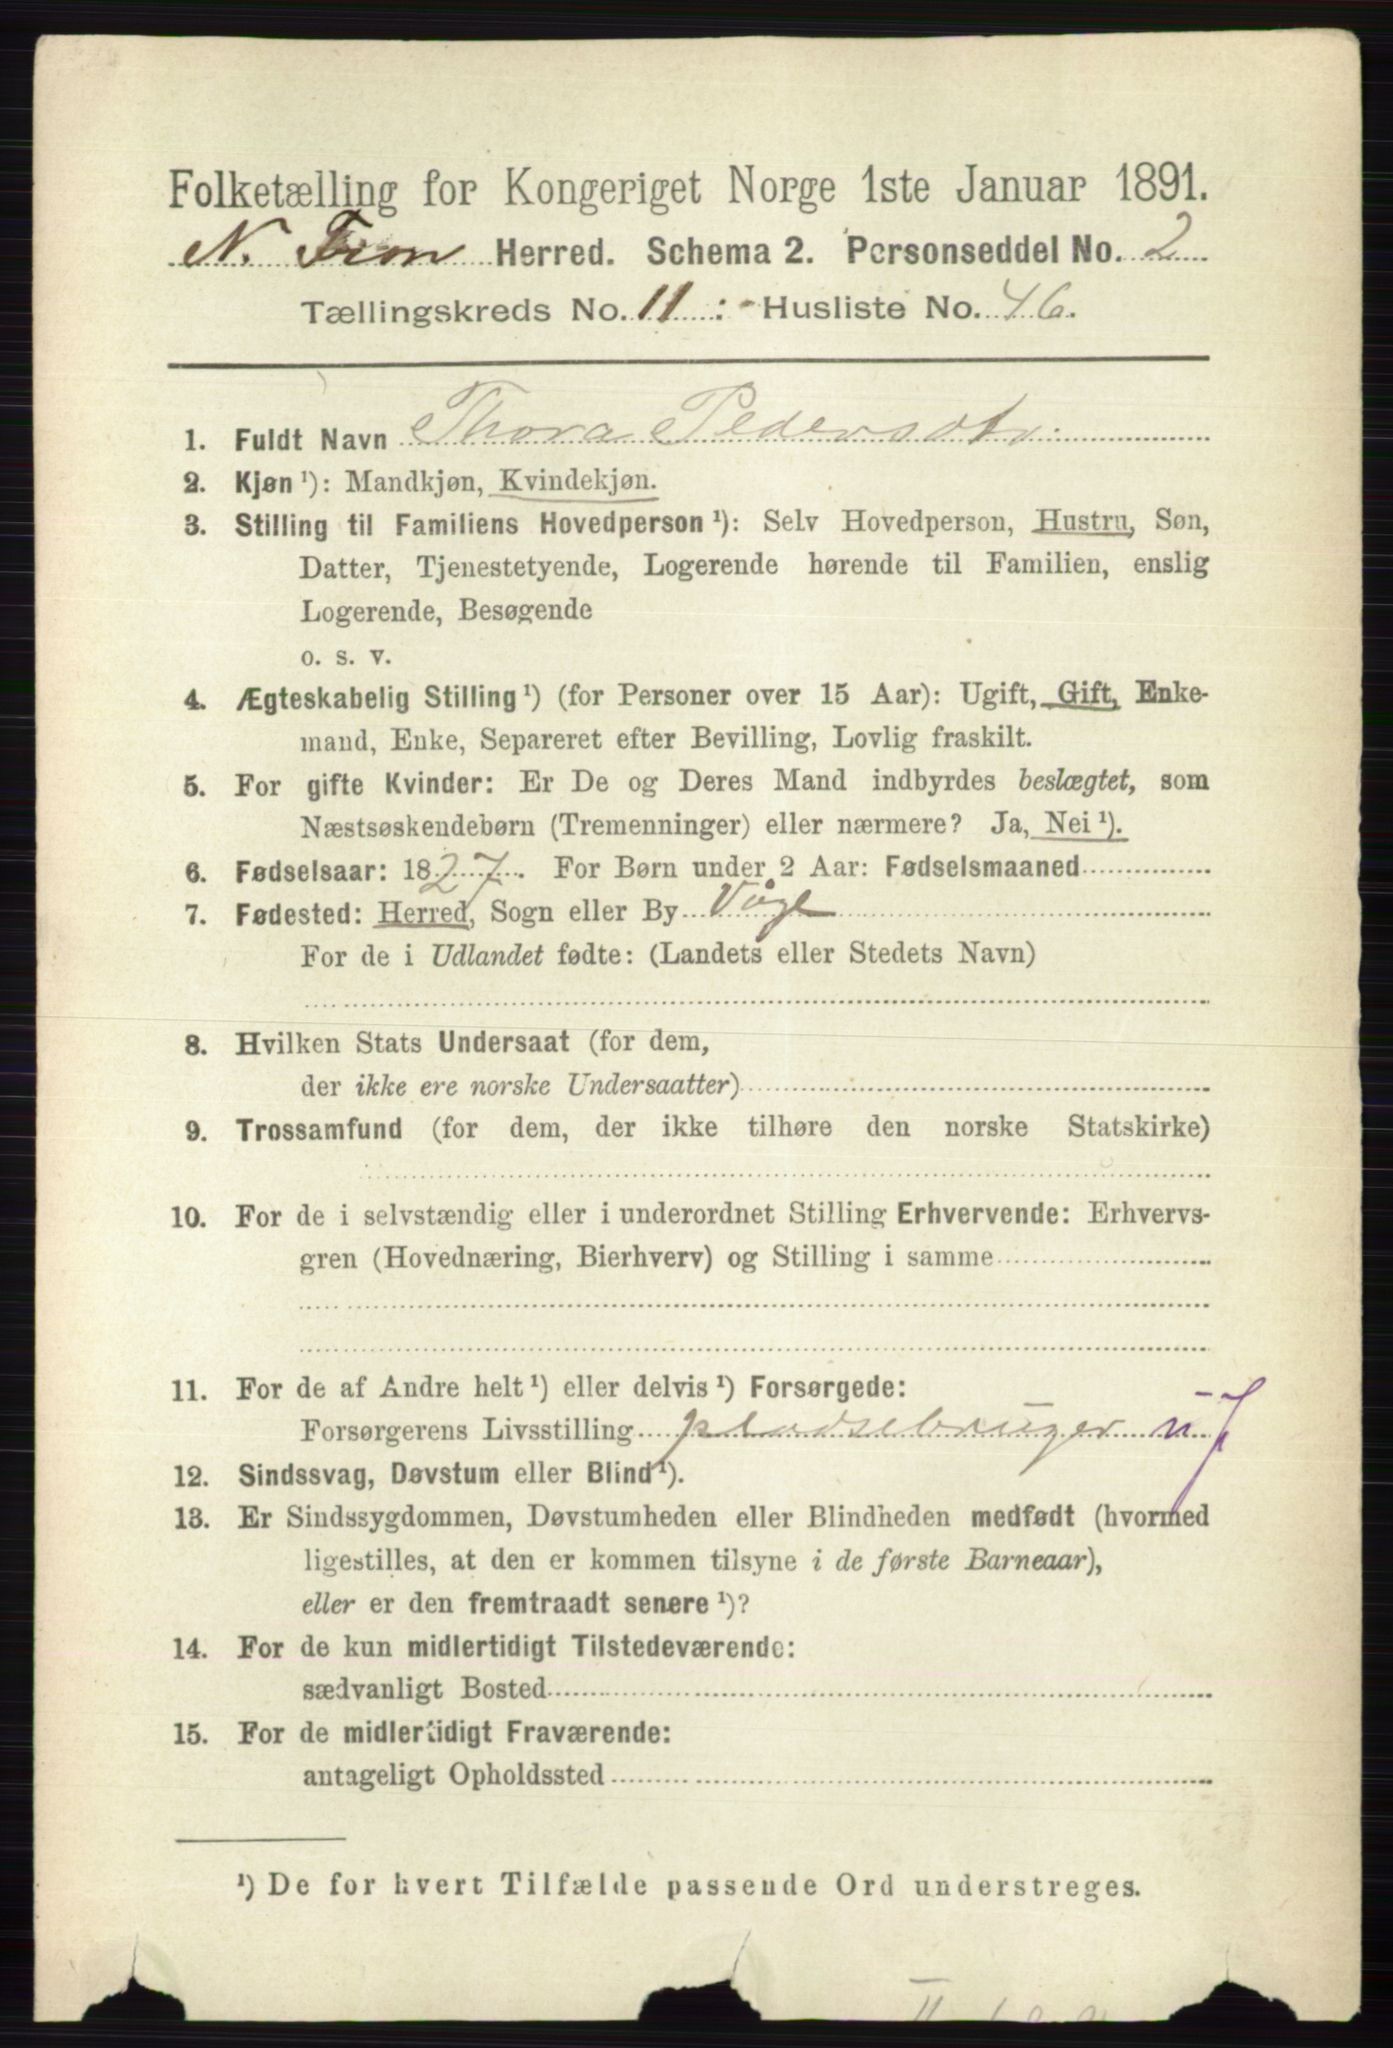 Folketælling for Kongeriget Norge 1ste Januar 1891.
N. Fron Herred. Schema 2. Personseddel No. 2
Tællingskreds No. 11 : - Husliste No. 46.
1. Fuldt Navn Thora Pedersdtr.
2. Kjøn ¹): Mandkjøn, Kvindekjøn.
3. Stilling til Familiens Hovedperson ¹): Selv Hovedperson, Hustru, Søn,
Datter, Tjenestetyende, Logerende hørende til Familien, enslig
Logerende, Besøgende
o. s. v.
4. Ægteskabelig Stilling ¹) (for Personer over 15 Aar): Ugift, Gift, Enke-
mand, Enke, Separeret efter Bevilling, Lovlig fraskilt.
5. For gifte Kvinder: Er De og Deres Mand indbyrdes beslægtet, som
Næstsøskendebørn (Tremenninger) eller nærmere? Ja, Nei ¹).
6. Fødselsaar: 1827. For Børn under 2 Aar: Fødselsmaaned
7. Fødested: Herred, Sogn eller By Våge
For de i Udlandet fødte: (Landets eller Stedets Navn)
8. Hvilken Stats Undersaat (for dem,
der ikke ere norske Undersaatter)
9. Trossamfund (for dem, der ikke tilhøre den norske Statskirke)
10. For de i selvstændig eller i underordnet Stilling Erhvervende: Erhvervs-
gren (Hovednæring, Bierhverv) og Stilling i samme
11. For de af Andre helt ¹) eller delvis ¹) Forsørgede:
Forsørgerens Livsstilling pladsebruger
12. Sindssvag, Døvstum eller Blind ¹).
13. Er Sindssygdommen, Døvstumheden eller Blindheden medfødt (hvormed
ligestilles, at den er kommen tilsyne i de første Barneaar),
eller er den fremtraadt senere ¹)?
14. For de kun midlertidigt Tilstedeværende:
sædvanligt Bosted
15. For de midlertidigt Fraværende:
antageligt Opholdssted
¹) De for hvert Tilfælde passende Ord understreges.